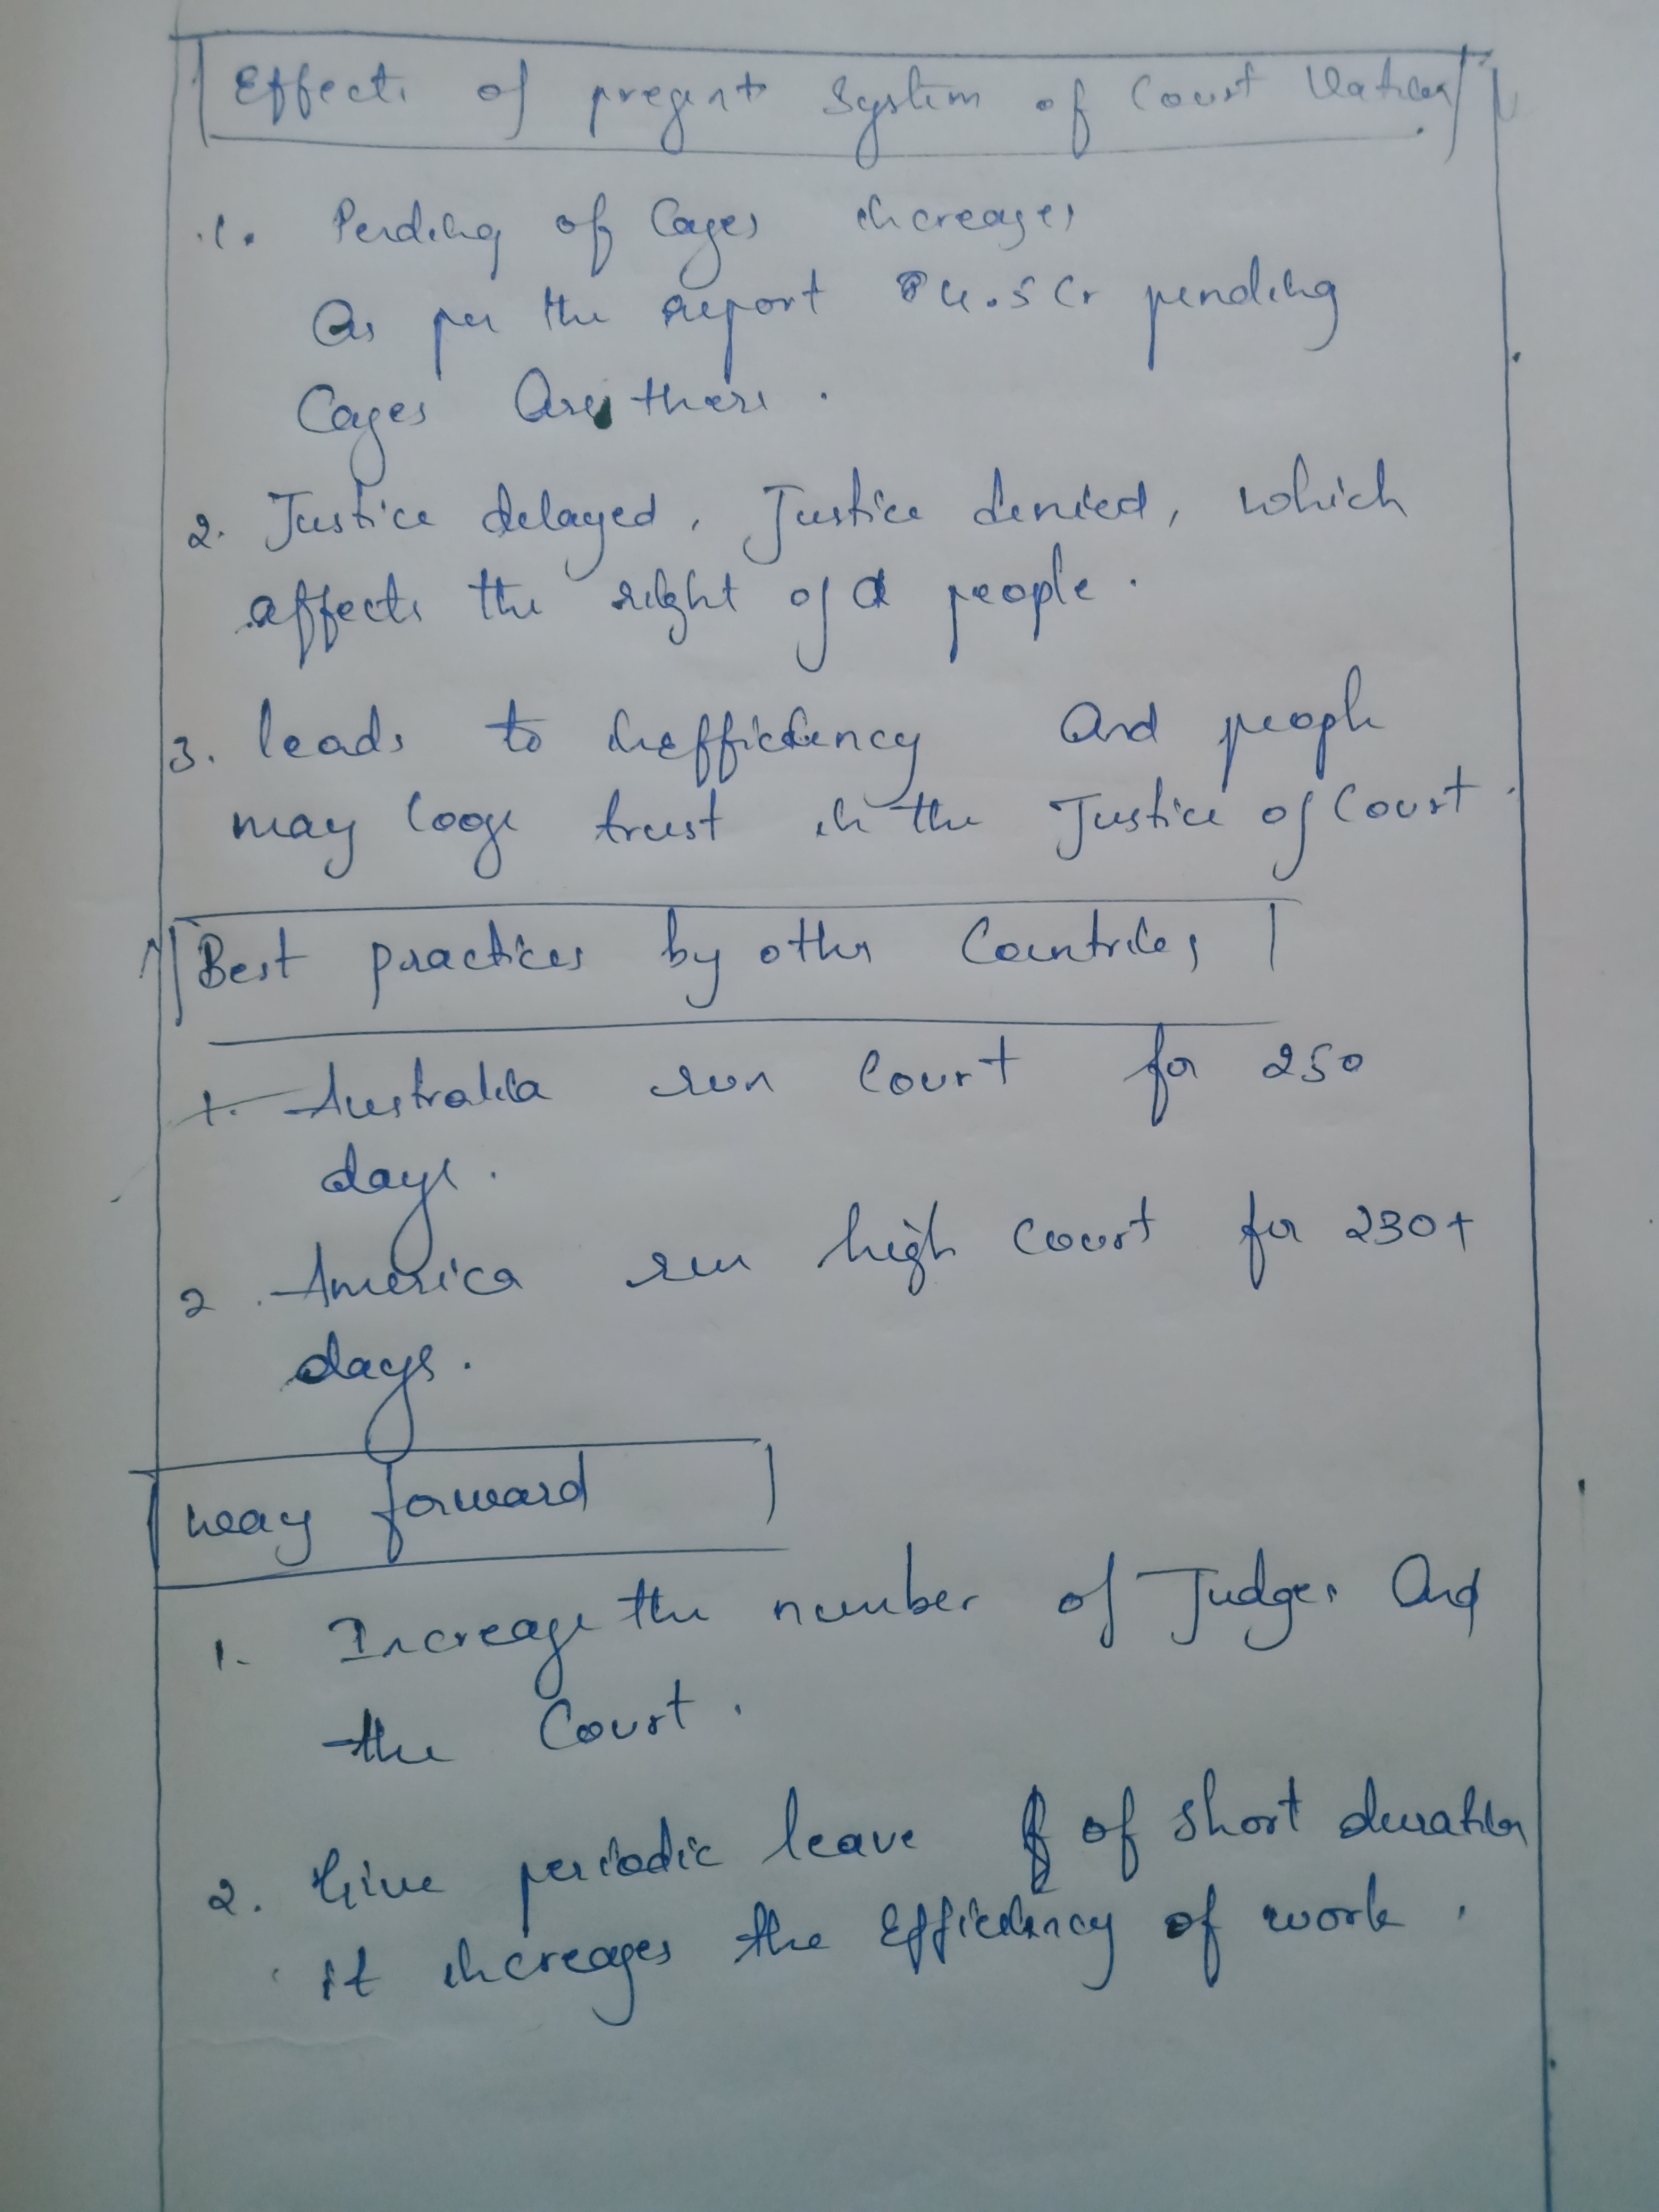 Effects of present System of Court Vation
1. Pending of Cases increases
As per the report 4.5 Cr pending
Cases Are there.
2. Justice delayed, Justice denied, which
affects the right of people.
3. leads to inefficiency And people
may loose trust in the Justice of Court.
Best practices by other Countries
1. Australia run Court for 250
days.
2. America run high Court for 230+
days.
way forward
1. Increase the number of Judges And
the Court.
2. Give periodic leave of short duration
it increases the Efficiency of work.